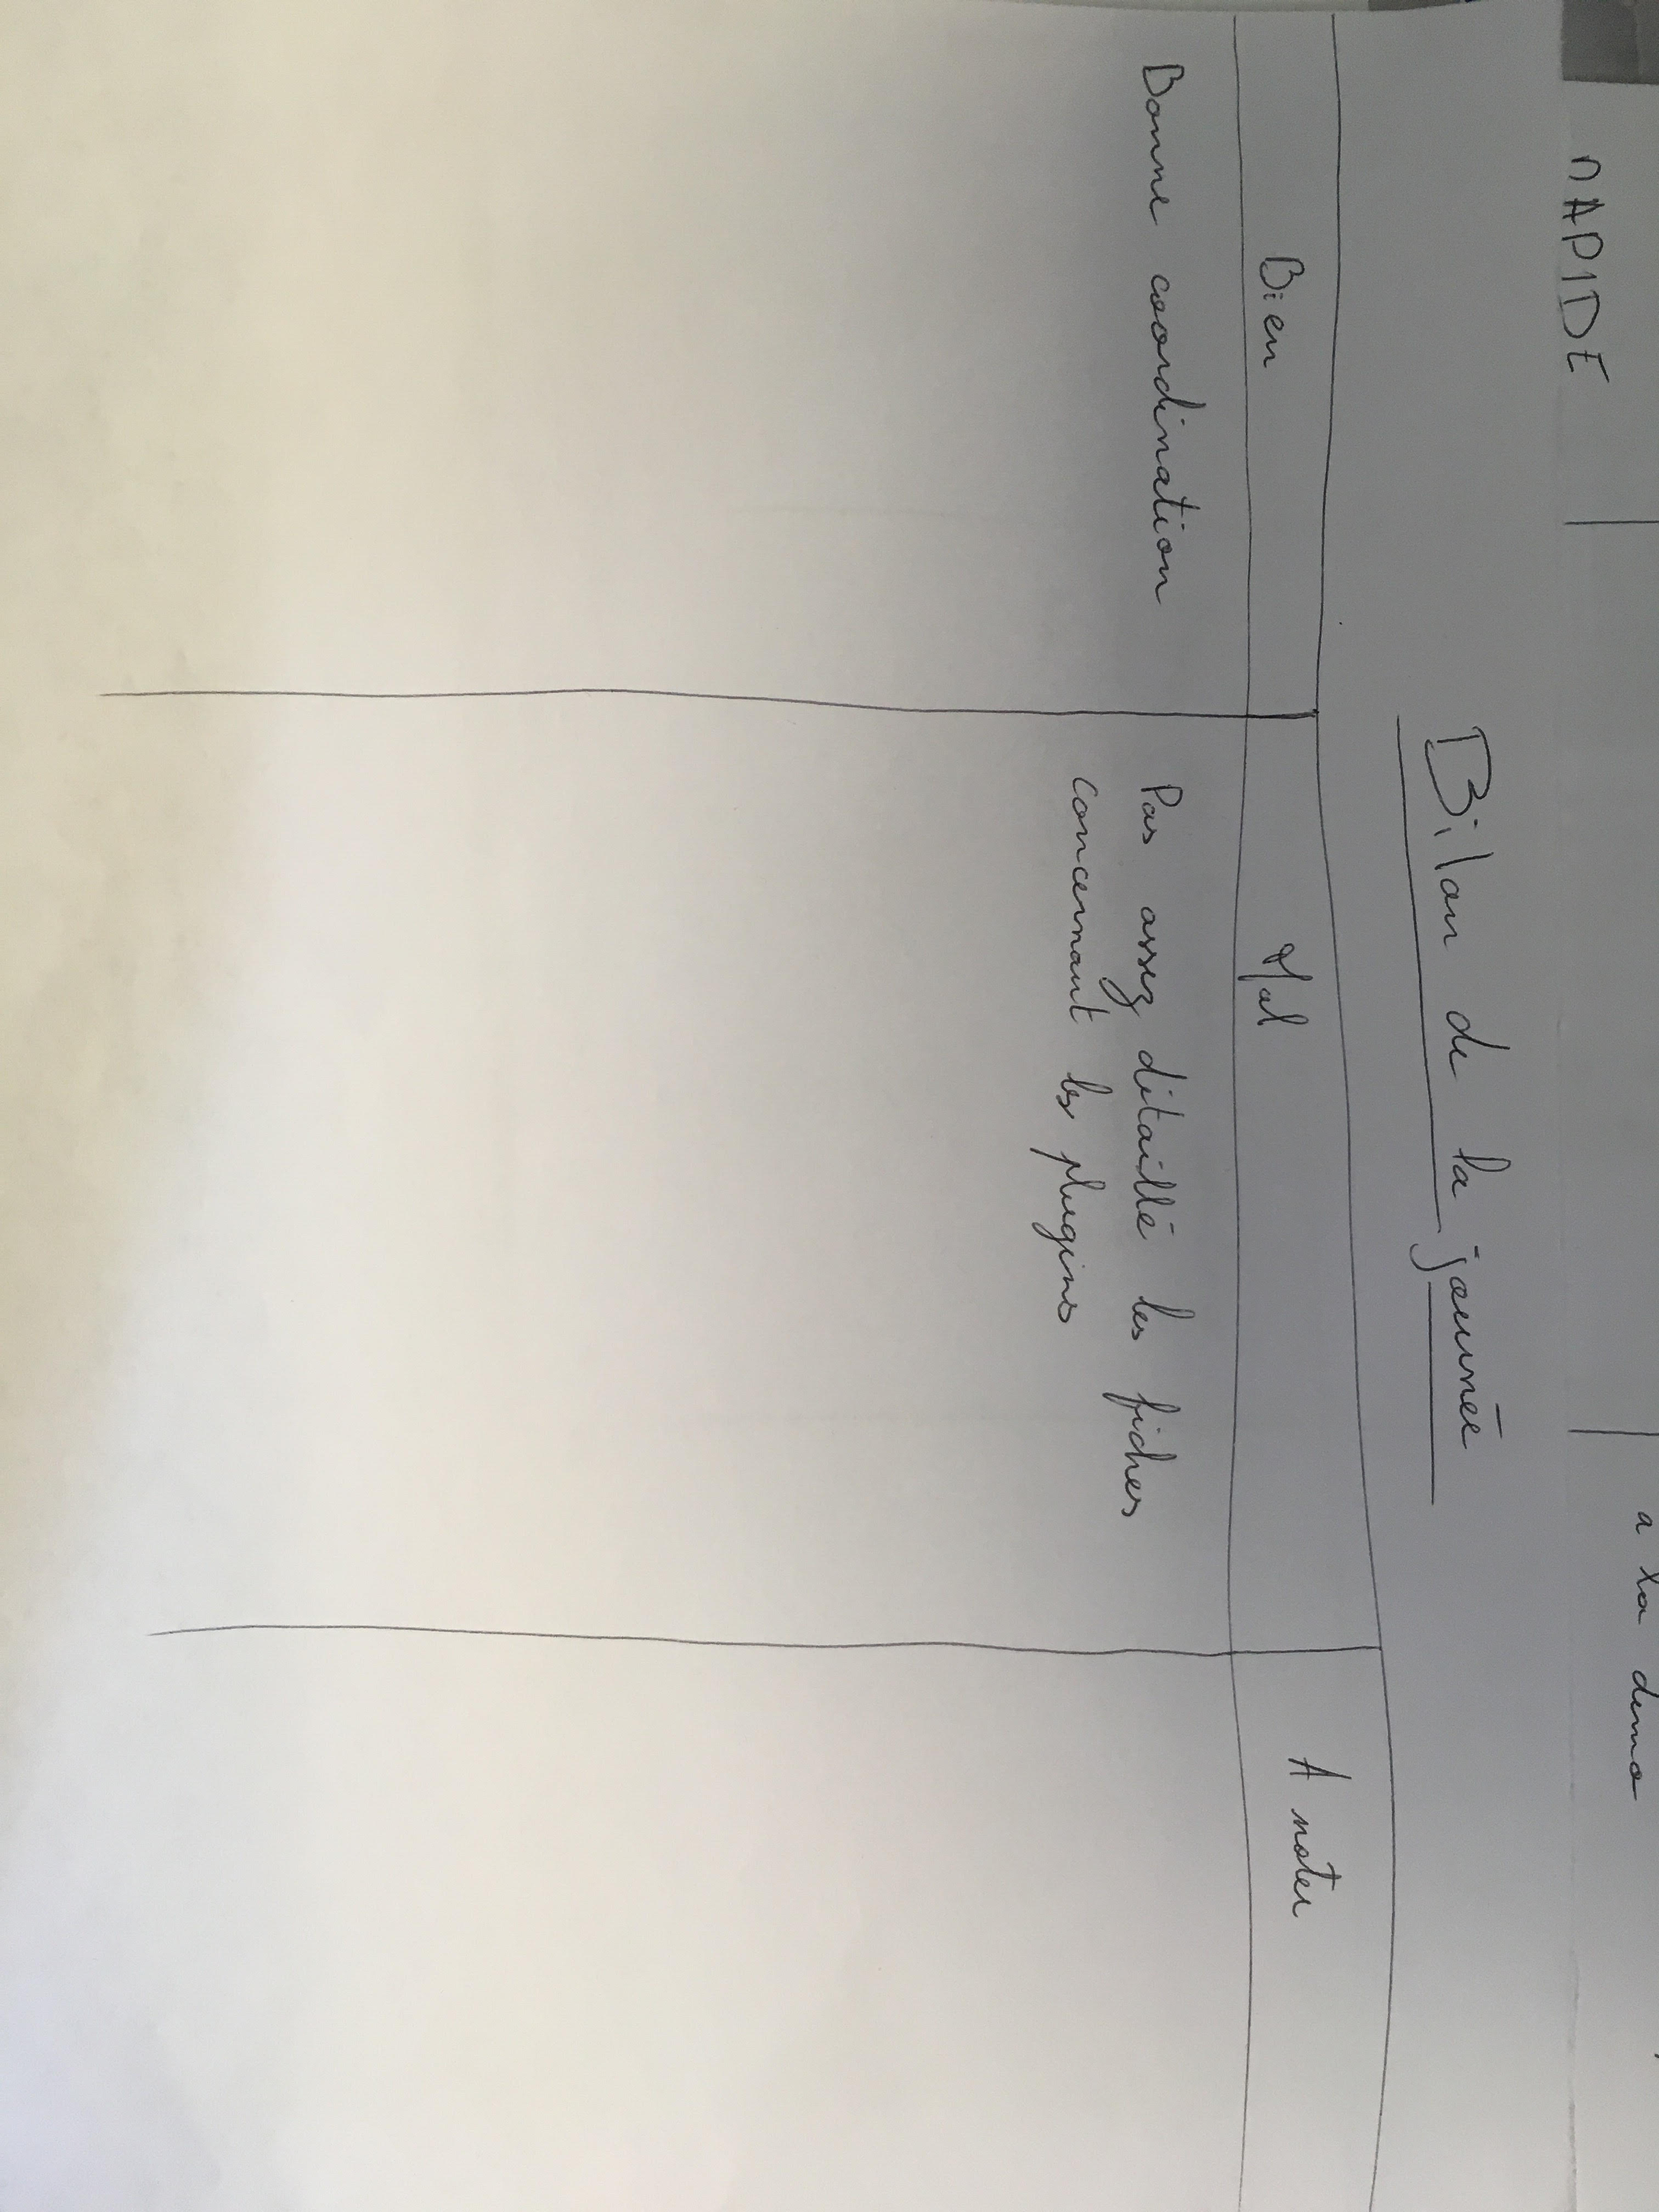 RAPIDE
a la demo
Bilan de la journée
Bien
Mal
A noter
Bonne coordination
Pas assez détaillé les fiches
concernant les plugins